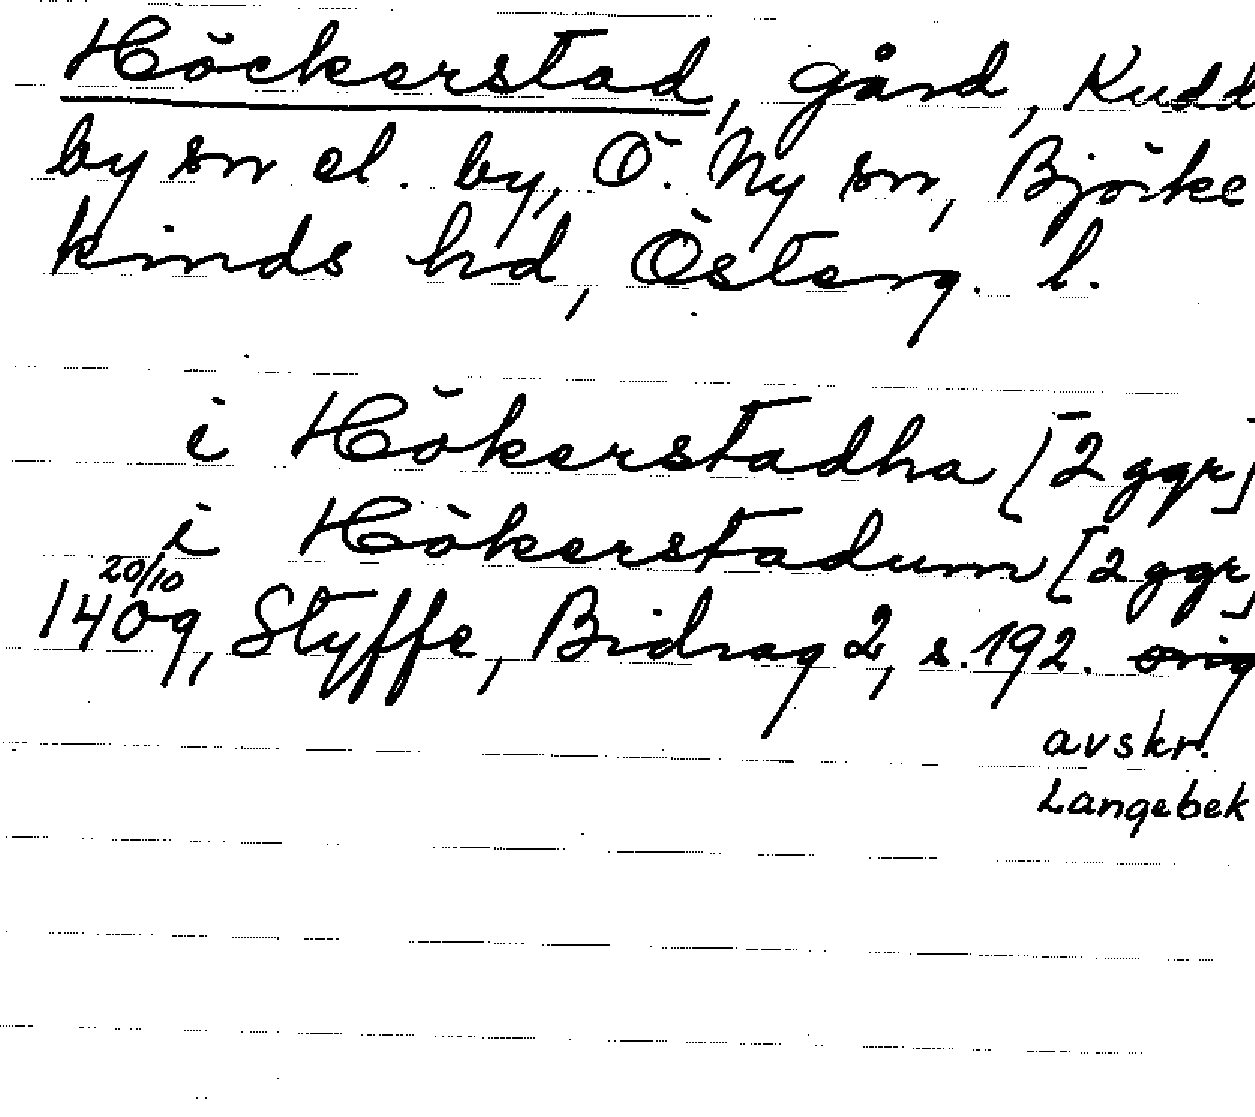 Höckerstad, gård, Kudd
by sn el. by, Ö. Ny sn, Björke
kinds hd, Österg. l.
i Hökerstadha [2 ggr]
i Hökerstadum [2 ggr]
20/10
1409, Styffe, Bidrag 2, s. 192. orig
avskr.
Langebek